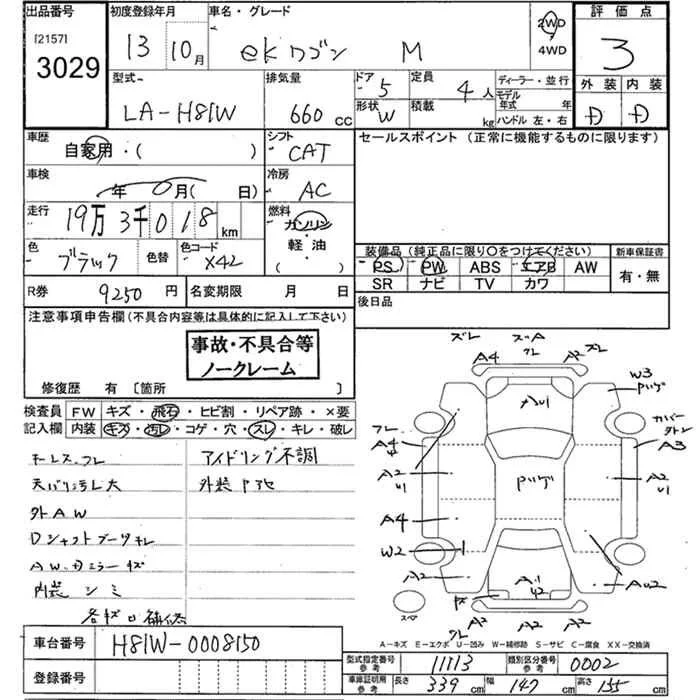 出品番号 初度登録年月 車名・グレード 評価点
[2157] 3029 13 10月 ekワゴン M 2WD 4WD 3
型式 排気量 ドア 定員 ディーラー・並行 外装 内装
LA-H81W 660cc 5 4人 モデル年式 年 D D
形状 W 積載 kg ハンドル 左・右
車歴 シフト セールスポイント (正常に機能するものに限ります)
自家用・( ) CAT
車検 冷房
年 0月( 日) AC
走行 燃料
19万3千018km ガソリン・軽油 ( )
色 ブラック 色替 色コード X42
装備品 (純正品に限り○をつけてください) 新車保証書
PS PW ABS エアB AW 有・無
SR ナビ TV カワ
R券 9250円 名変期限 月 日 後日品
注意事項申告欄(不具合内容等は具体的に記入して下さい)
事故・不具合等
ノークレーム
修復歴 有 〔箇所 〕
検査員 FW キズ・飛石・ヒビ割・リペア跡・×要
記入欄 内装 キズ・汚レ・コゲ・穴・スレ・キレ・破レ
キーレス、フレ アイドリング不調
天バリ汚レ大
外AW
Dシャフトブーツキレ
内装 シミ
ズレ ズレ
A4 A2
W3
カバー
A4 A3
A2 A2
A4
W2
A2
A2 A2
スペア
A-キズ E-エクボ U-凹み W-補修跡 S-サビ C-腐食 XX-交換済
車台番号 H81W-0008150
登録番号
型式指定番号 参考 11113 類別区分番号 参考 0002
車庫証明用 参考 長さ 339cm 幅 147cm 高さ 155cm